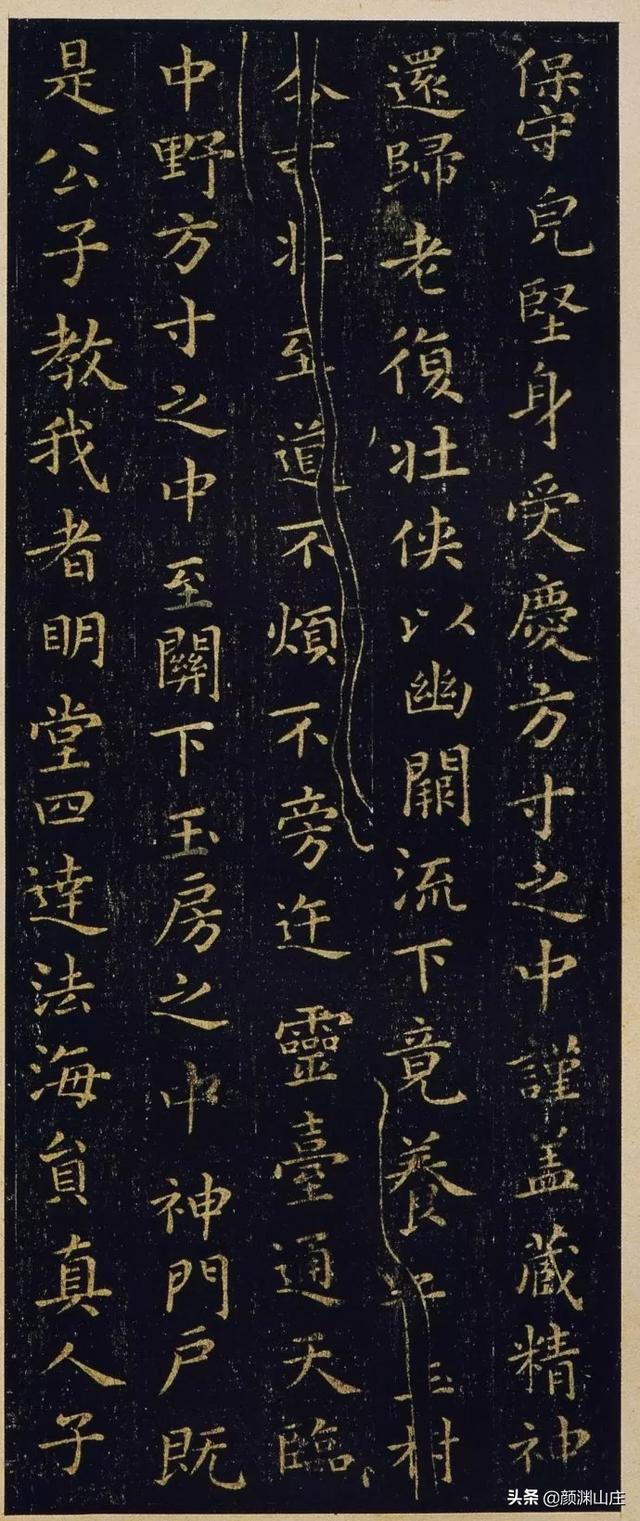 保守皃堅身受慶方寸之中謹盖藏精神
還歸老復壯俠以幽闕流下竟養
令可至道不煩不旁迕靈臺通天臨
中野方寸之中至關下玉房之中神門户既
是公子教我者眀堂四達法海貟真人子
头条 @颜渊山庄